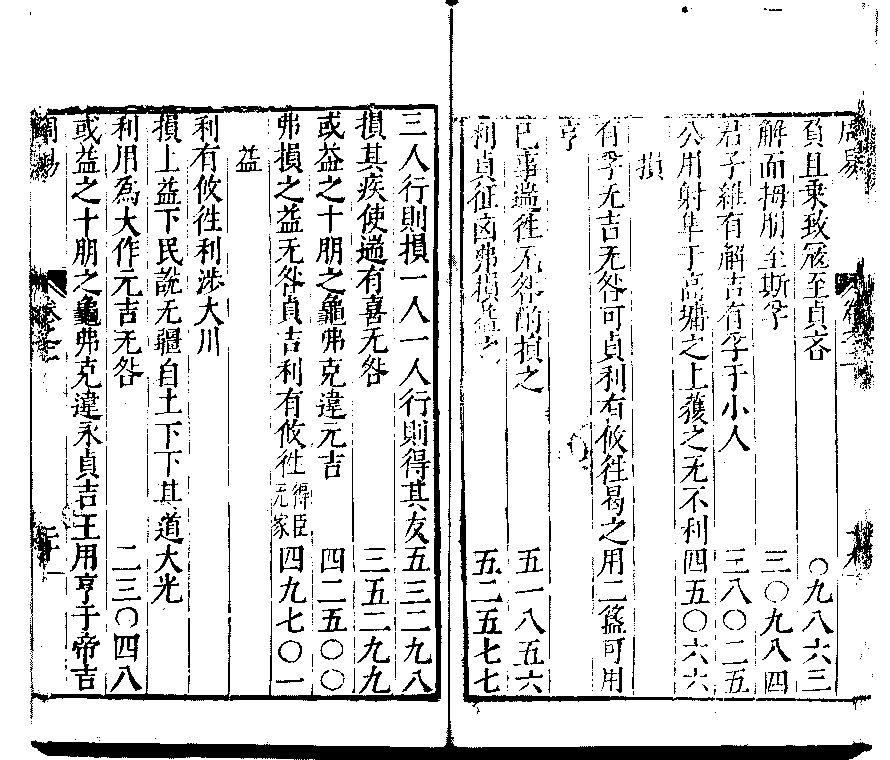 周易
負且乗致冦至貞吝 〇九八六三
解而拇朋至斯孚 三〇九八四
君子維有解吉有孚于小人 三八〇二五
公用射隼于高墉之上獲之无不利四五〇六六
損
有孚元吉无咎可貞利有攸徃曷之用二簋可用
亨
巳事遄徃无咎酌損之 五一八五六
利貞征凶弗損益之 五二五七七
三人行則損一人一人行則得其友五三二九八
損其疾使遄有喜无咎 三五二九九
或益之十朋之龜弗克違元吉 四二五〇〇
弗損之益无咎貞吉利有攸徃得臣无家四九七〇一
益
利有攸徃利涉大川
損上益下民說无疆自上下下其道大光
利用爲大作元吉无咎 二三〇四八
或益之十朋之龜弗克違永貞吉王用亨于帝吉
周易